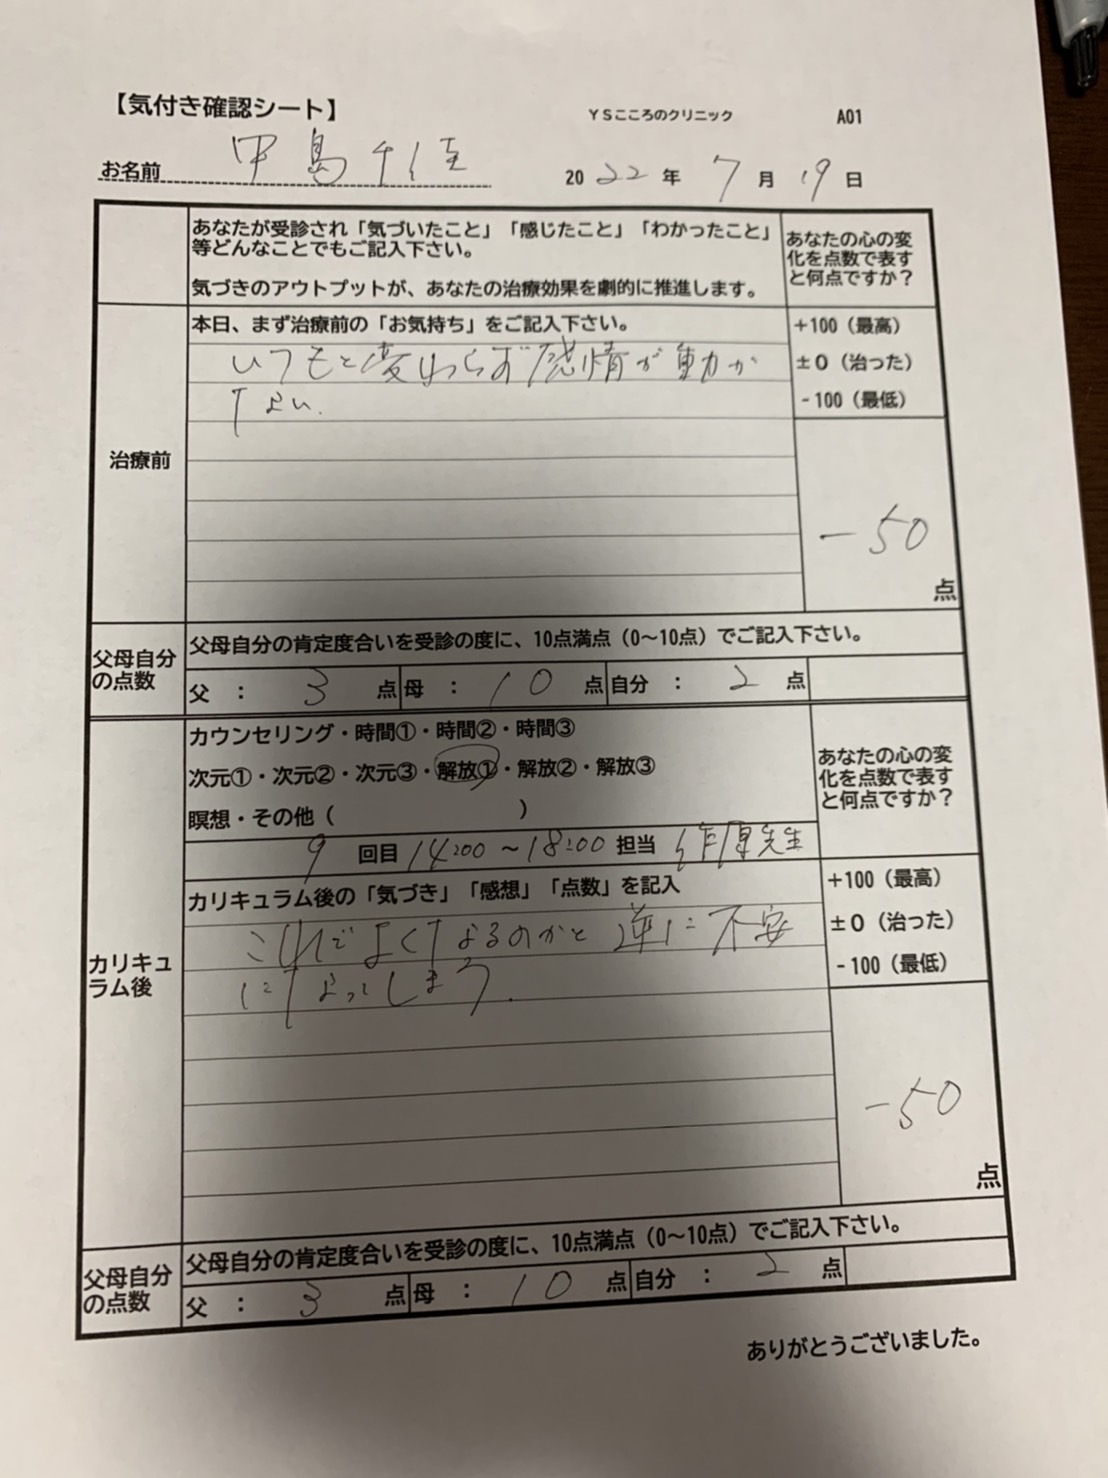 【気付き確認シート】
YSこころのクリニック A01
お名前 中島千佳 2022年7月19日
あなたが受診され「気づいたこと」「感じたこと」「わかったこと」
等どんなことでもご記入下さい。
気づきのアウトプットが、あなたの治療効果を劇的に推進します。
あなたの心の変
化を点数で表す
と何点ですか?
治療前
本日、まず治療前の「お気持ち」をご記入下さい。
いつもと変わらず感情が動か
ない.
+100(最高)
±0(治った)
-100(最低)
-50
点
父母自分
の点数
父母自分の肯定度合いを受診の度に、10点満点(0~10点)でご記入下さい。
父 : 3 点 母 : 10 点 自分 : 2 点
カリキュ
ラム後
カウンセリング・時間①・時間②・時間③
次元①・次元②・次元③・解放①・解放②・解放③
瞑想・その他( )
9 回目 14:00 ~18:00 担当 先生
カリキュラム後の「気づき」「感想」「点数」を記入
これでよくなるのかと逆に不安
になってしまう.
あなたの心の変
化を点数で表す
と何点ですか?
+100(最高)
±0(治った)
-100(最低)
-50
点
父母自分
の点数
父母自分の肯定度合いを受診の度に、10点満点(0~10点)でご記入下さい。
父 : 3 点 母 : 10 点 自分 : 2 点
ありがとうございました。